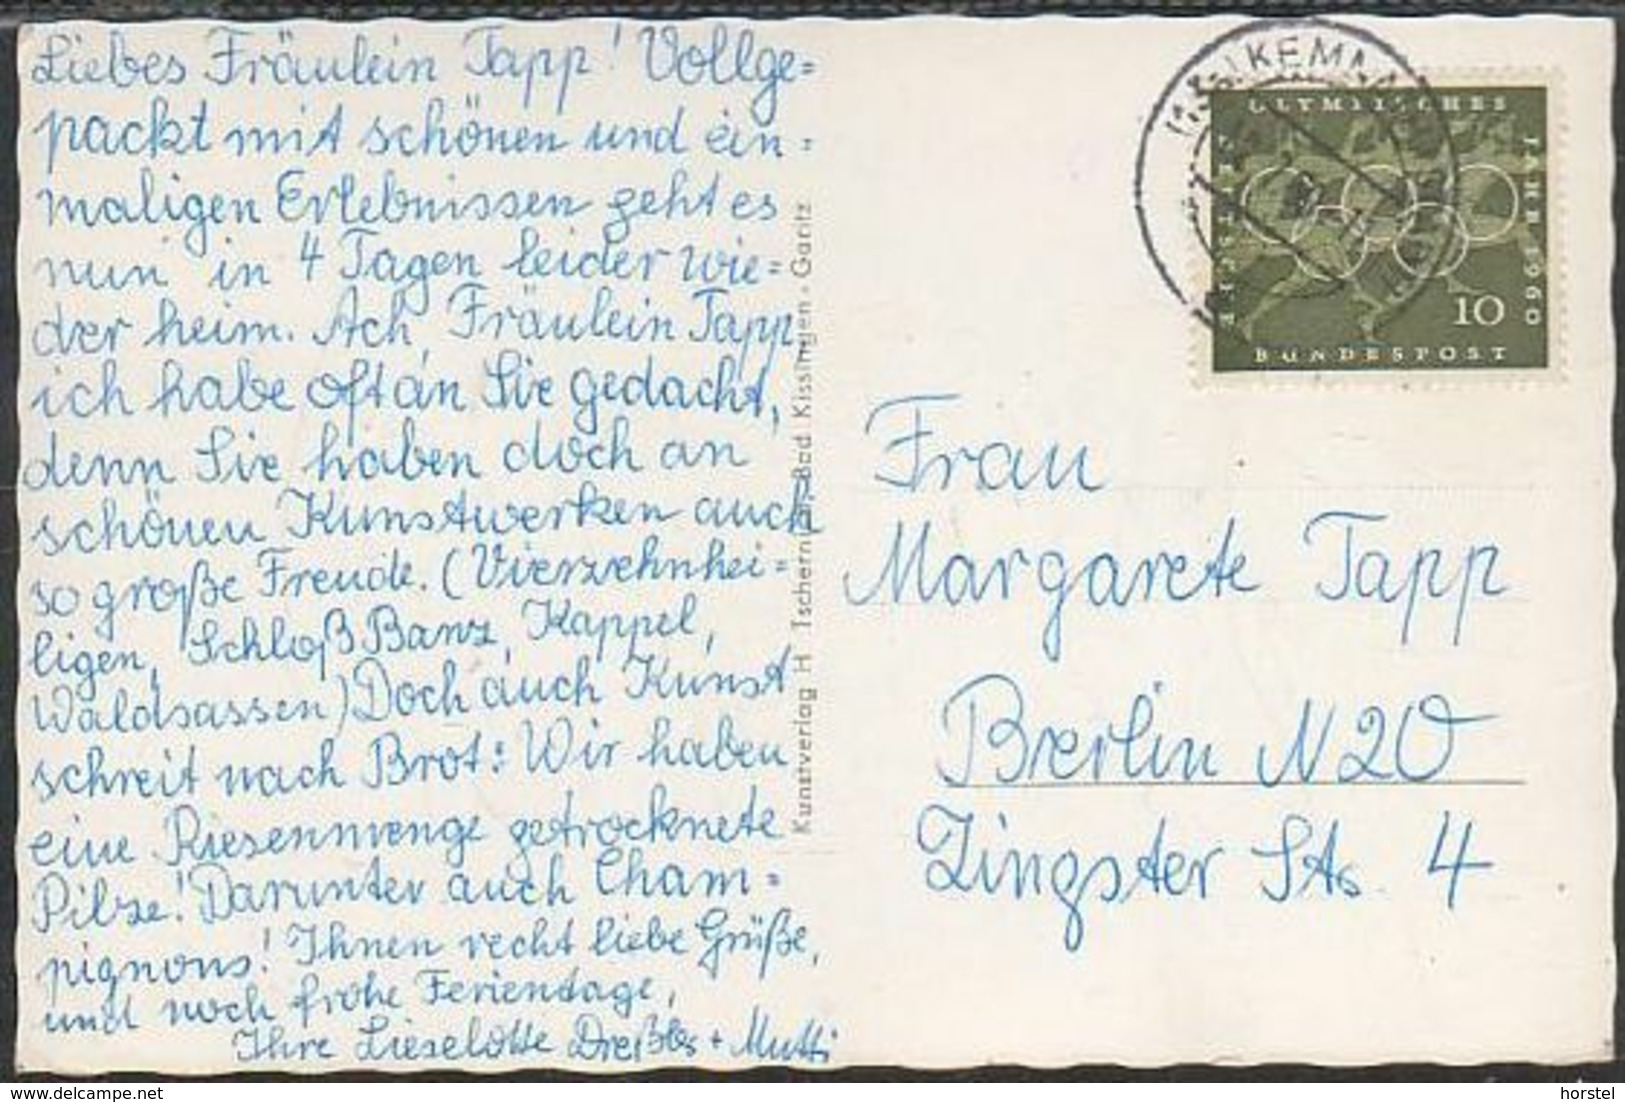 Liebes Fräulein Tapp! Vollge=
packt mit schönen und ein=
maligen Erlebnissen geht es
nun in 4 Tagen leider wie=
der heim. Ach, Fräulein Tapp,
ich habe oft an Sie gedacht,
denn Sie haben doch an
schönen Kunstwerken auch
so große Freude. (Vierzehnhei=
ligen, Schloß Banz, Kappel,
Waldsassen) Doch auch Kunst
schreit nach Brot: Wir haben
eine Riesenmenge getrocknete
Pilze! Darunter auch Cham=
pignons! Ihnen recht liebe Grüße,
und noch frohe Ferientage,
Ihre Lieselotte + Mutti
Kunstverlag H. Bad Kissingen-Garitz
OLYMPISCHES
JAHR 1960
10
BUNDESPOST
Frau
Margarete Tapp
Berlin N20
Zingster Str. 4
© delcampe.net
horstel